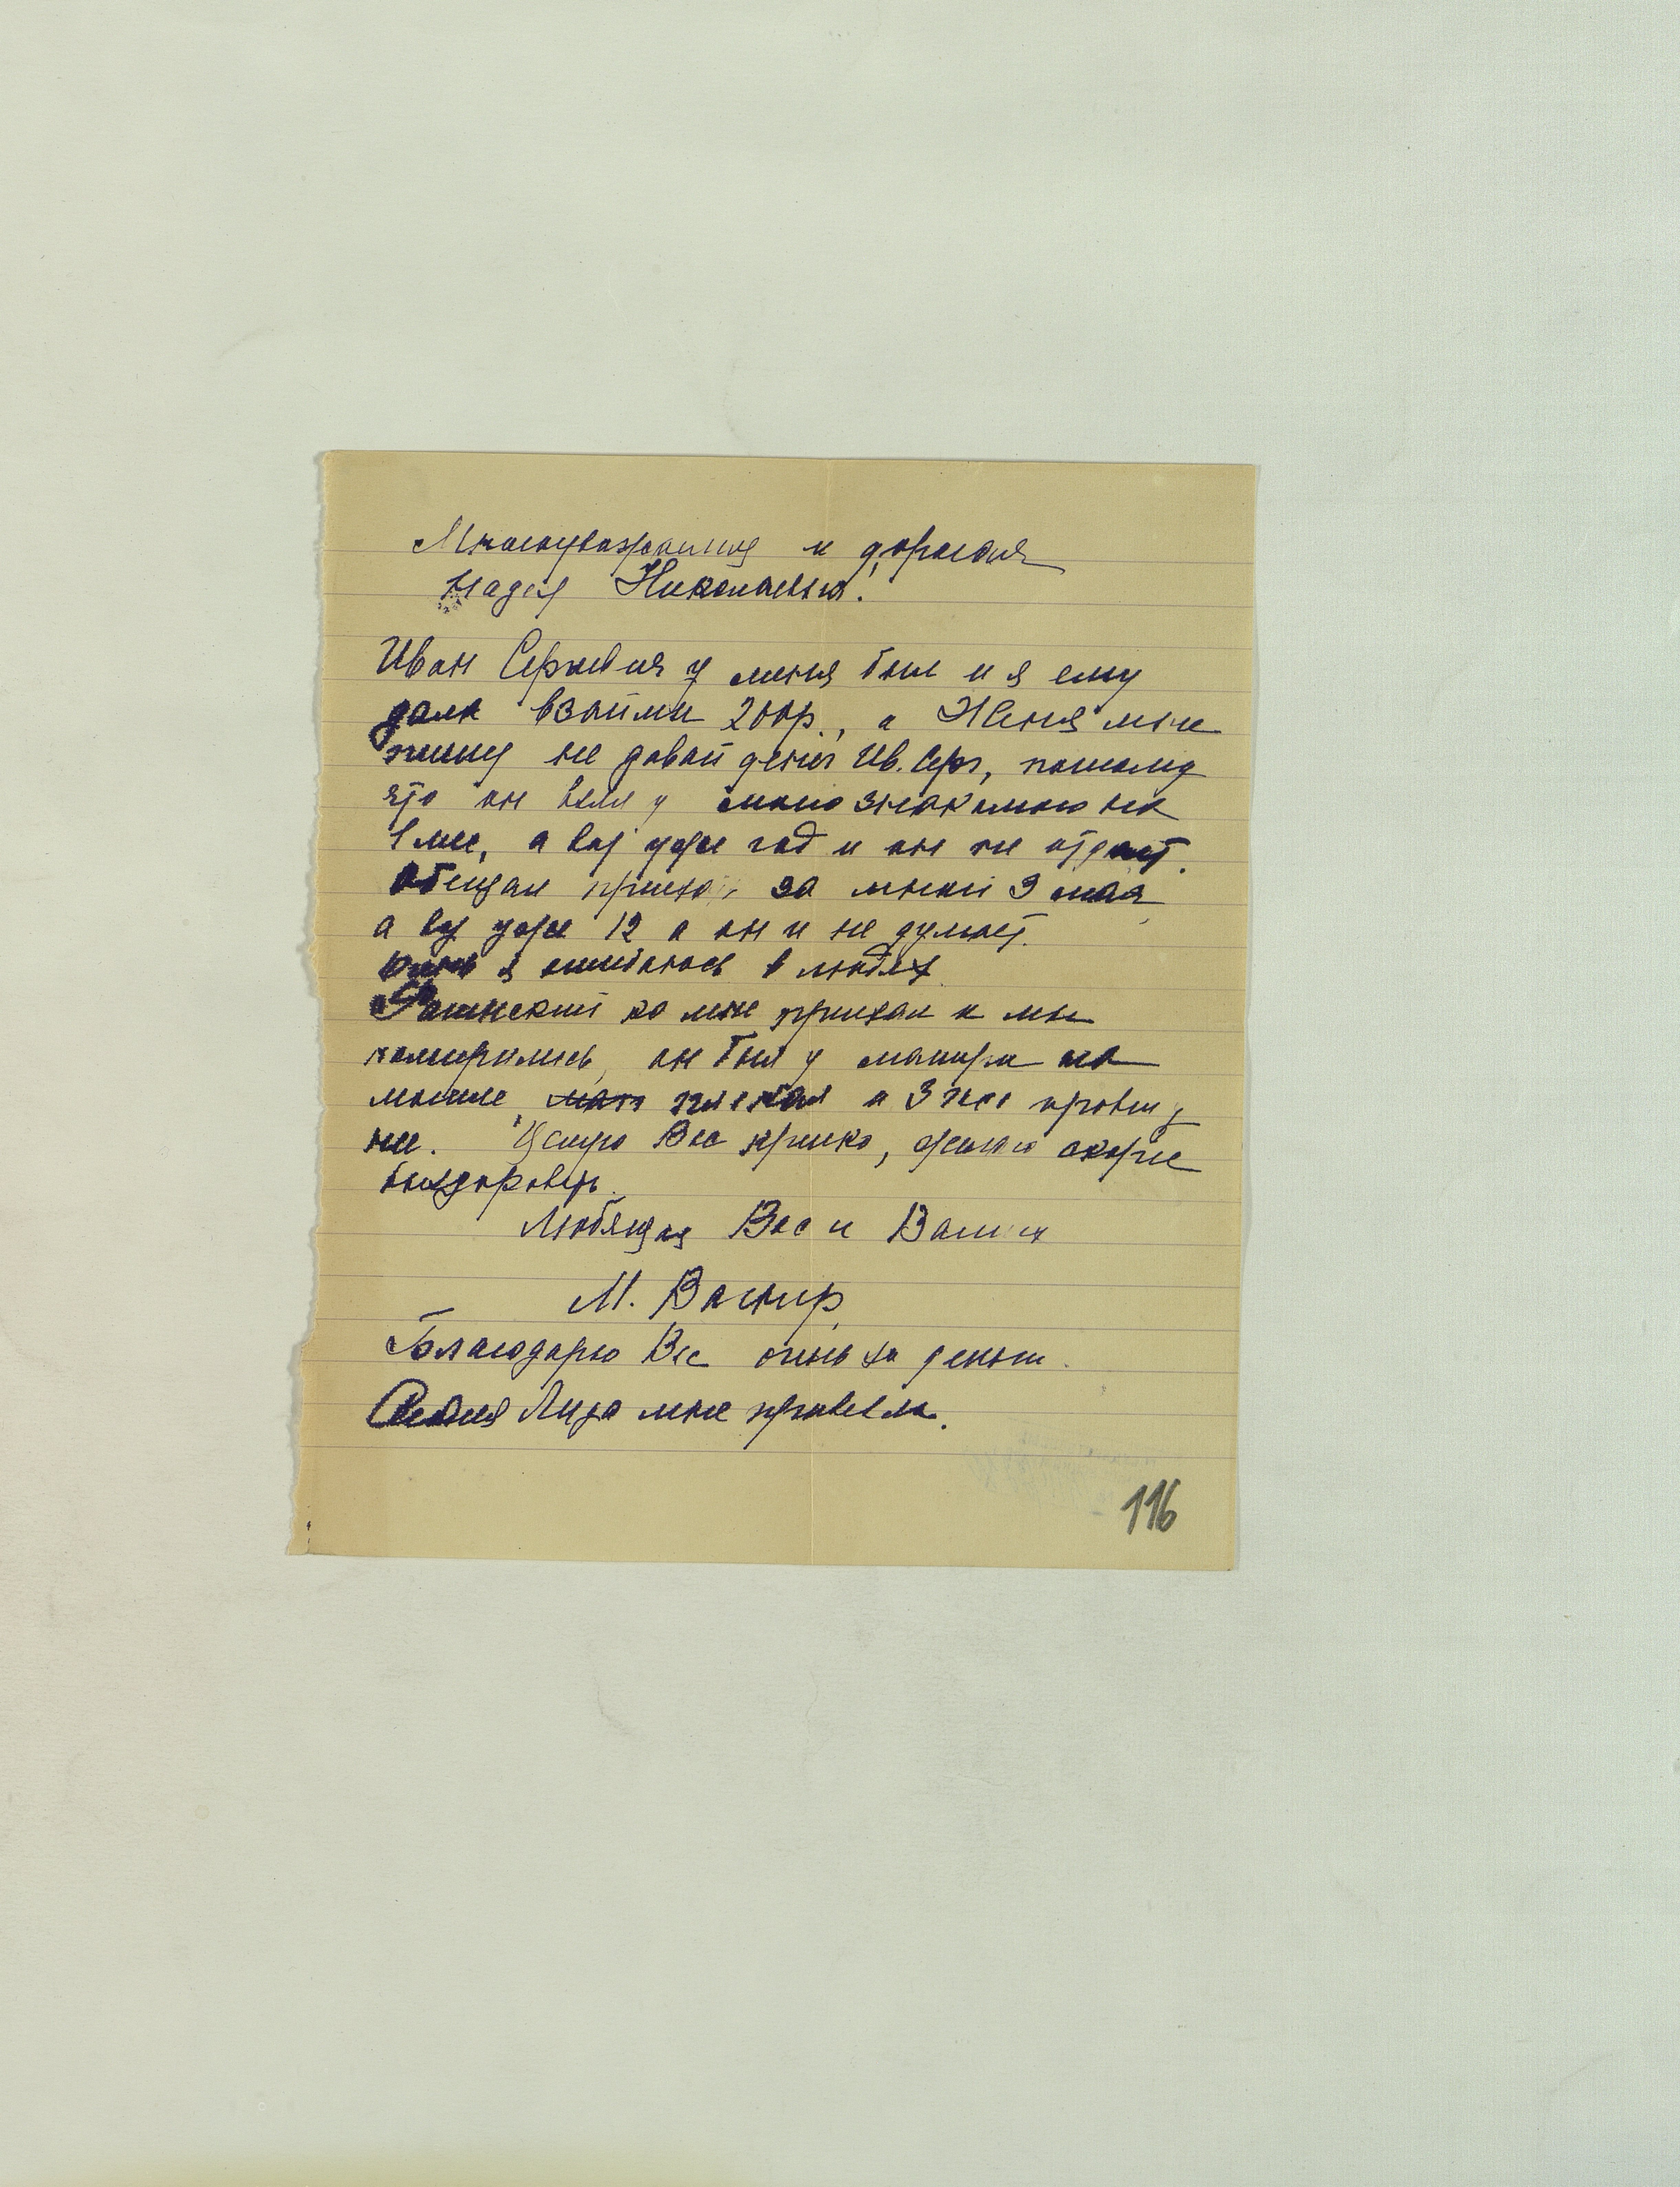 Многоуважаемая и дорогая
Надея Николаевна!
Иван Сергеевич у меня был и я ему
дала взаймы 200р., а Женя мне
пишу не давай денег Ив. Серг, потому
что он взял у моего знакомого на
1 мес, а вот уже год и он не отдает.
Обещал приехать за мной 9 мая
а вот уже 12 а он и не думает.
Очень я ошибаюсь в людях.
ко мне приехал и мы
помирились, он был у матери на
могиле, и 3 часа провел у
нее. Целую Вас крепко, желаю скорее
выздороветь.
Любящая Вас и Ваших
М. Вагнер
Благодарю Вас очень за деньги.
Лиза мне привезла.
116